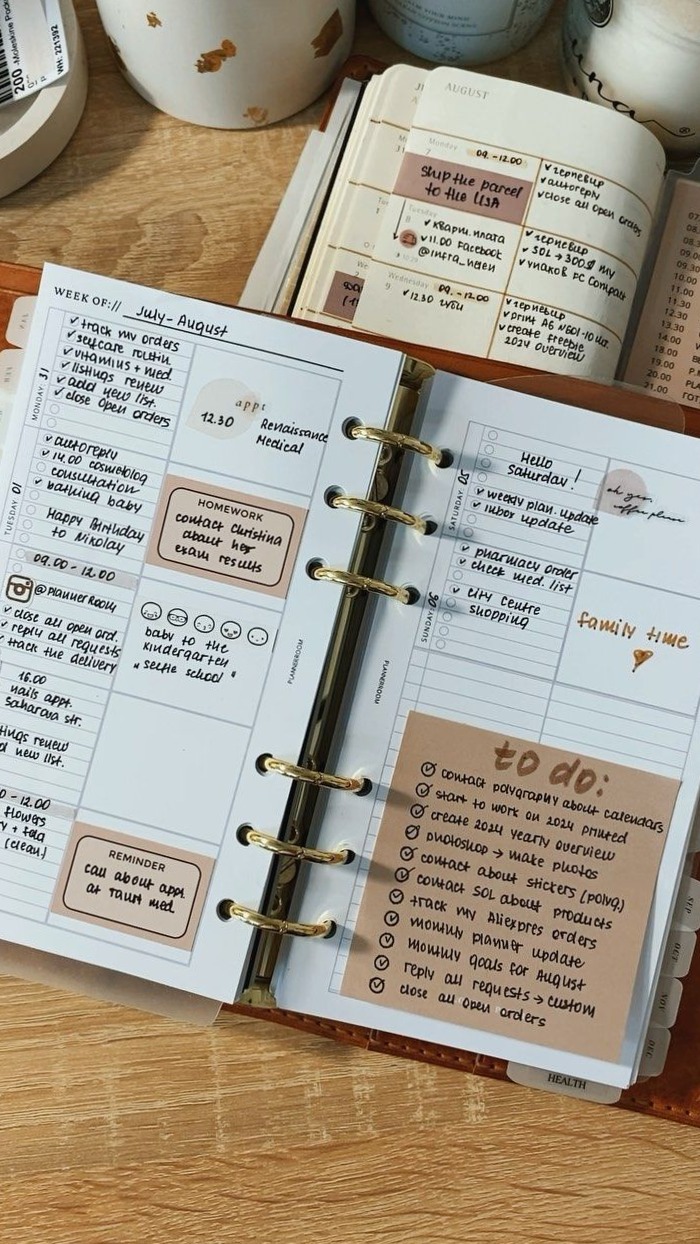 200
Moleskine
WH: 221392
CALM YOUR MIND
AUGUST
Monday
7
09.-12.00
Ship the parcel
to the USA
✓ autoreply
✓ close all open orders
Tuesday
8
✓ 11.00 Facebook
@inxra_helen
✓ SOL → 300$ my
Wednesday
9
✓ 12.30
09.-12.00
✓ print A6 №01-10
✓ create freebie
2024 overview
08.30
09.30
10.00
10.30
11.00
11.30
12.00
12.30
13.00
14.00
18.00
19.00
20.00
21.00
WEEK OF:// July-August
MONDAY 31
✓ track my orders
✓ selfcare routin
✓ vitamins + med.
✓ listings renew
✓ add new list.
✓ close open orders
appt
12.30 Renaissance
Medical
TUESDAY 01
✓ autoreply
✓ 14.00 cosmetolog
consultation
✓ bathing baby
Happy Birthday
to Nikolay
HOMEWORK
contact Christina
about her
exam results
09.00 - 12.00
@plannerRoom
✓ close all open ord.
✓ reply all requests
✓ track the delivery
baby to the
kindergarten
"selfie school"
PLANNERROOM
16.00
nails appt.
Saharova str.
renew
new list.
- 12.00
flowers
(clean)
REMINDER
call about appt.
at Taurt med.
SATURDAY 05
Hello
Saturday!
✓ weekly plan. update
✓ inbox update
oh yes,
coffee please
SUNDAY 06
✓ pharmacy order
✓ check med. list
✓ city centre
shopping
family time
PLANNERROOM
to do:
contact polygraphy about calendars
start to work on 2024 printed
create 2024 yearly overview
photoshop → make photos
contact about stickers (polyg.)
contact SOL about products
track my Aliexpres orders
monthly planner update
monthly goals for August
reply all requests → custom
close all open orders
SEP
OCT
NOV
DEC
HEALTH